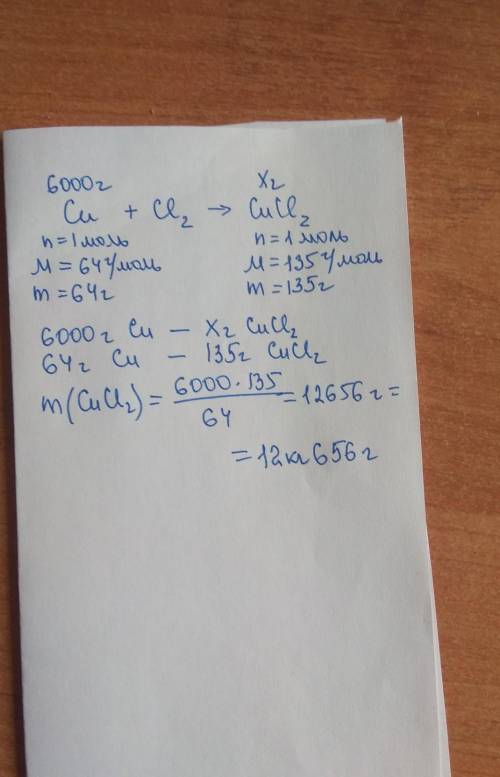 6000г хг
Cu + Cl₂ → CuCl₂
n = 1 моль n = 1 моль
M = 64 г/моль M = 135 г/моль
m = 64г m = 135г
6000г Cu — хг CuCl₂
64г Cu — 135г CuCl₂
m(CuCl₂) = 6000·135/64 = 12656 г =
= 12кг 656 г